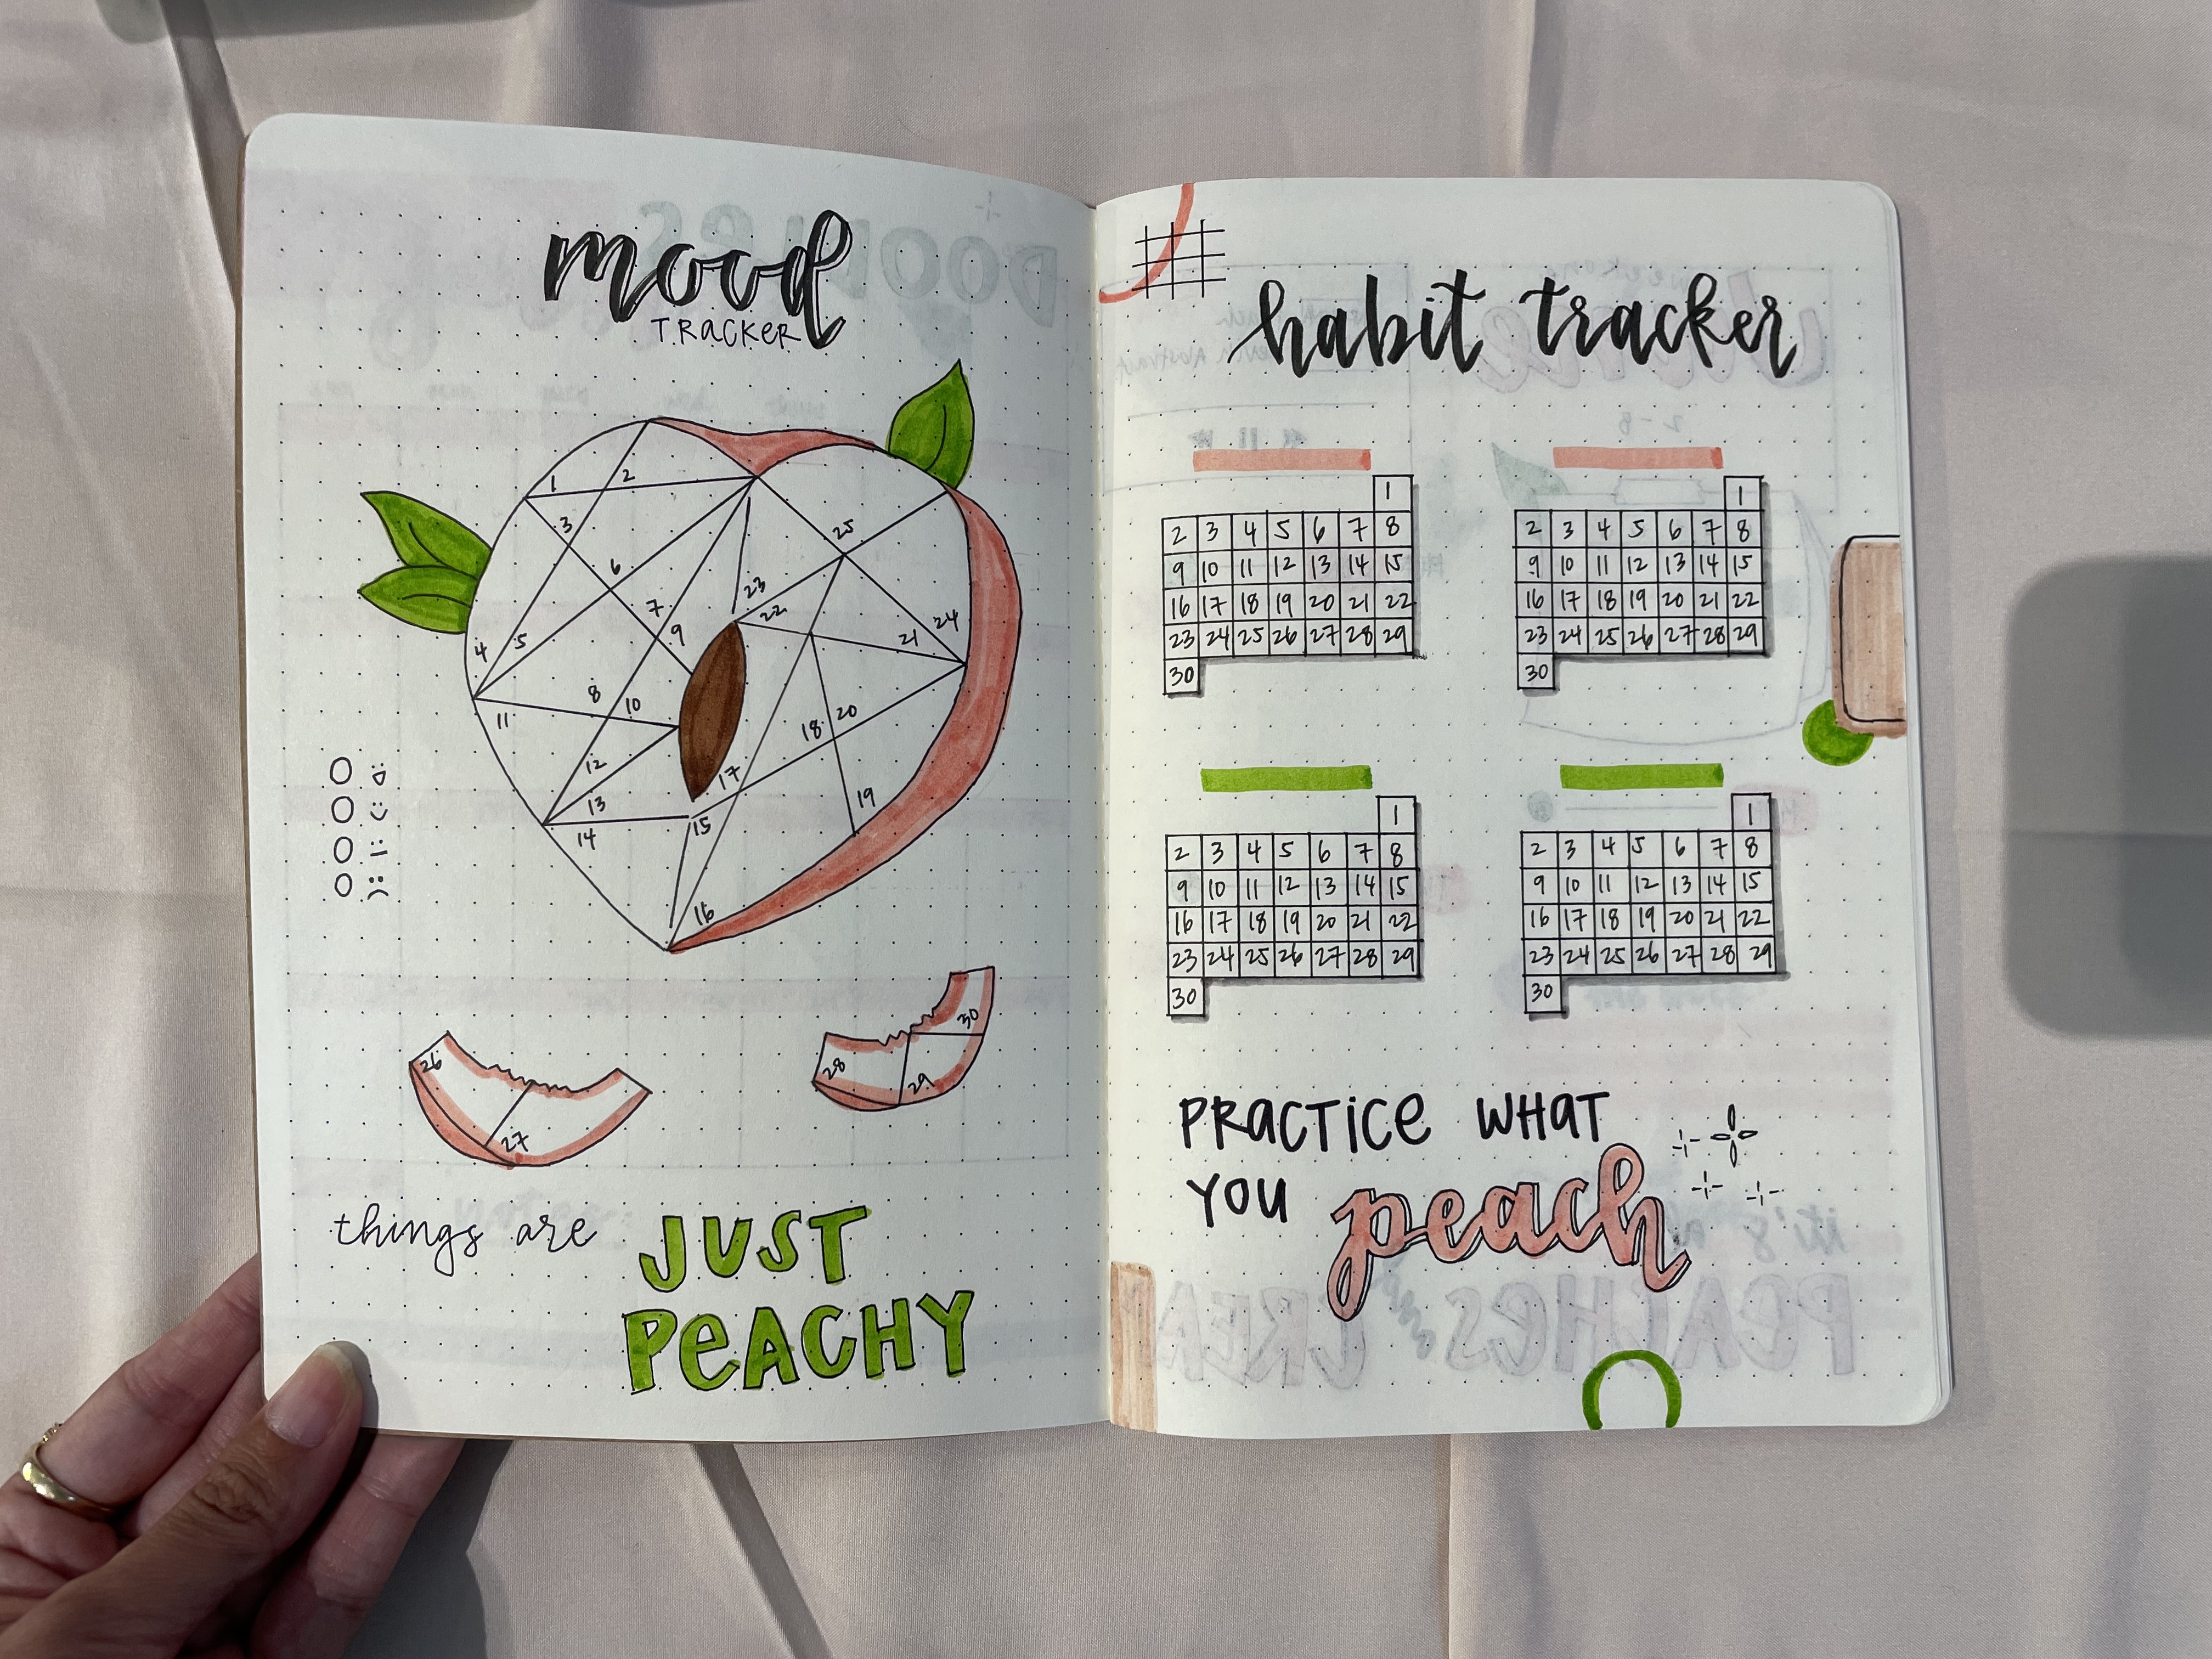 mood
TRACKER
1 2
3
25
6
23
7 22
9 24
21
4 5
8 10
11 20
18
12
17
13 19
14 15
16
:D
:)
:|
:(
26
27
30
28
29
things are JUST
PEACHY
habit tracker
1
2 3 4 5 6 7 8
9 10 11 12 13 14 15
16 17 18 19 20 21 22
23 24 25 26 27 28 29
30
1
2 3 4 5 6 7 8
9 10 11 12 13 14 15
16 17 18 19 20 21 22
23 24 25 26 27 28 29
30
1
2 3 4 5 6 7 8
9 10 11 12 13 14 15
16 17 18 19 20 21 22
23 24 25 26 27 28 29
30
1
2 3 4 5 6 7 8
9 10 11 12 13 14 15
16 17 18 19 20 21 22
23 24 25 26 27 28 29
30
PRACTICE WHAT
YOU peach